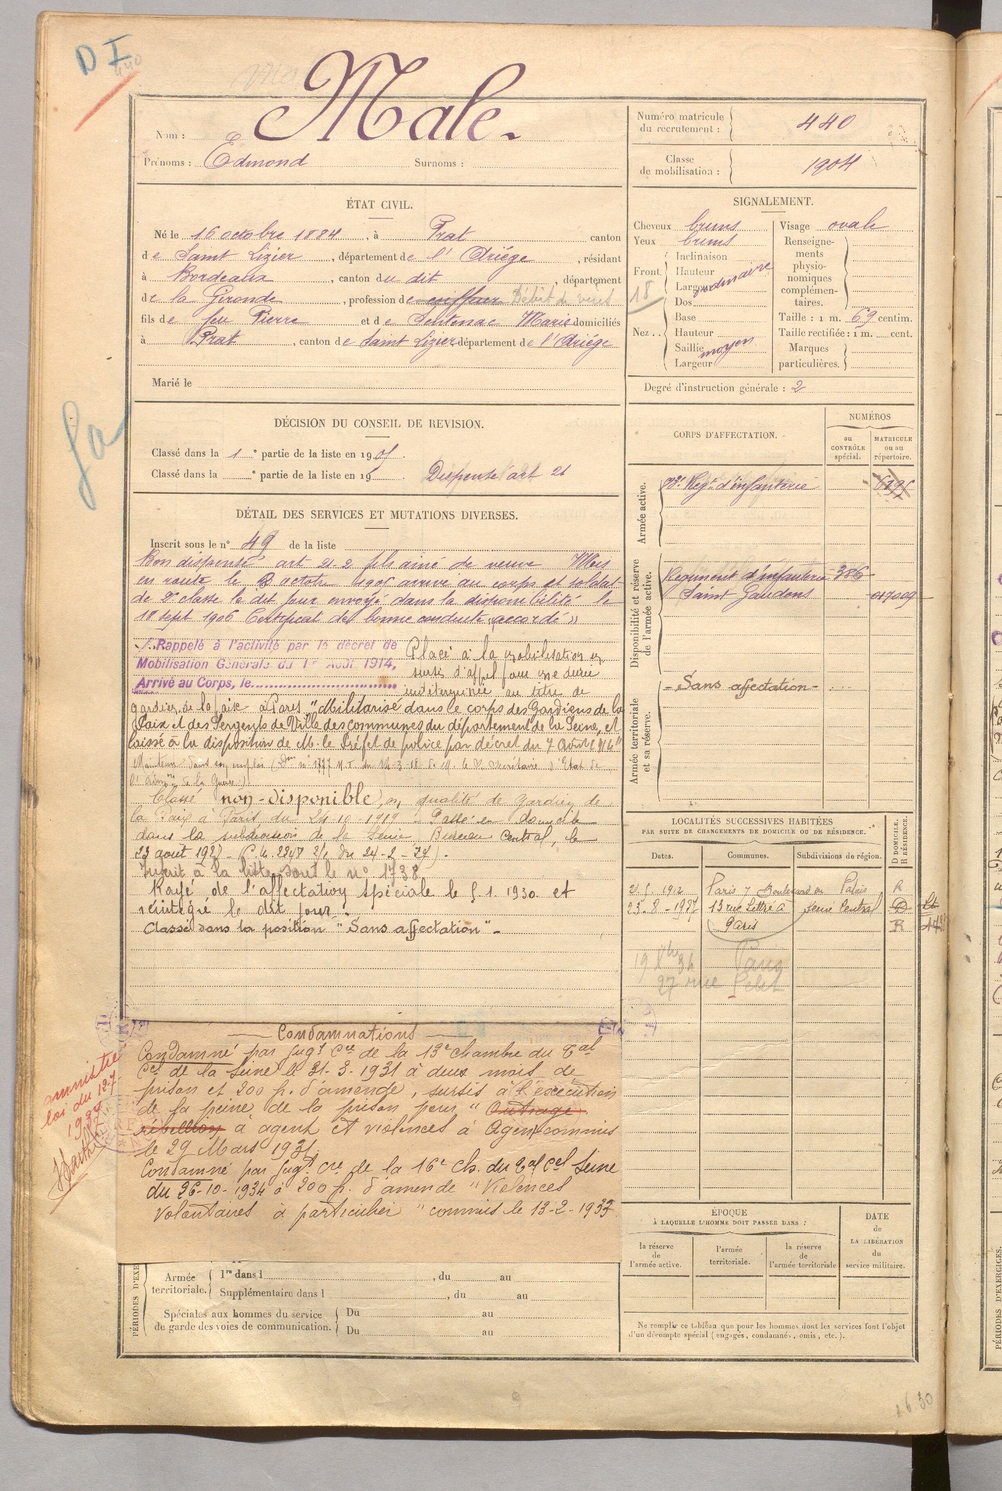 D I
440
Nom : Male.
Prénoms : Edmond Surnoms :
Numéro matricule du recrutement : 440
Classe de mobilisation : 1904
ÉTAT CIVIL.
Né le 16 octobre 1884, à Prat canton
de Saint Lizier, département de l'Ariège, résidant
à Bordeaux, canton du dit département
de la Gironde, profession de coiffeur Débit de vins
fils de feu Pierre et de Sentenac Marie domiciliés
à Prat, canton de Saint Lizier département de l'Ariège
Marié le
SIGNALEMENT.
Cheveux bruns
Yeux bruns
Front
Inclinaison
Hauteur
Largeur ordinaire
Nez
Dos
Base
Hauteur
Saillie
Largeur moyen
18
Visage ovale
Renseignements physionomiques complémentaires.
Taille : 1 m. 69 centim.
Taille rectifiée : 1 m. cent.
Marques particulières.
Degré d'instruction générale : 2
DÉCISION DU CONSEIL DE REVISION.
Classé dans la 1e partie de la liste en 1905.
Classé dans la e partie de la liste en 190 Dispensé art 21
DÉTAIL DES SERVICES ET MUTATIONS DIVERSES.
Inscrit sous le n° 49 de la liste
Bon dispensé art 21-2 fils ainé de veuve Mis
en route le 8 octobre 1905 arrivé au corps et soldat
de 2e classe le dit jour envoyé dans la disponibilité le
18 sept 1906 Certificat de bonne conduite "accordé"
Rappelé à l'activité par le décret de
Mobilisation Générale du 1er Août 1914,
Arrivé au Corps, le
Placé à la mobilisation en
sursis d'appel pour une durée
indéterminée au titre de
gardien de la paix à Paris "Militarisé dans le corps des Gardiens de la
Paix et des Sergents de Ville des communes du département de la Seine, et
laissé à la disposition de M. le Préfet de police par décret du 7 Août 1914"
Classé non-disponible en qualité de Gardien de
la Paix à Paris du 24-10-1919 - Passé en domicile
dans la subdivision de la Seine, Bureau Central, le
23 août 1927
Inscrit à la liste sous le n° 1738
Rayé de l'affectation spéciale le 5.1.1930 et
réintégré le dit jour.
Classé dans la position "Sans affectation"
CORPS D'AFFECTATION.
NUMÉROS
au contrôle spécial.
MATRICULE ou au répertoire.
Armée active.
Regt d'infanterie
Disponibilité et réserve de l'armée active.
Régiment d'infanterie 386
Saint Gaudens 017009
Armée territoriale et sa réserve.
- Sans affectation -
LOCALITÉS SUCCESSIVES HABITÉES
PAR SUITE DE CHANGEMENTS DE DOMICILE OU DE RÉSIDENCE.
Dates. Communes. Subdivisions de région. D DOMICILE. R RÉSIDENCE.
21.5.1912 Paris 7 Boulevard du Palais R
23-8-1927 13 rue Littré Paris Seine Central D R
27 rue Petit
Condamnations
Condamné par Jugt Cel de la 13e chambre du Tal
Cel de la Seine le 31-3-1931 à deux mois de
prison et 200 f. d'amende, sursis à l'exécution
de la peine de la prison pour "Outrage
rébellion à agent et violences à Agent commis
le 29 Mars 1931
Condamné par Jugt de la 16e ch. du Tal Cel Seine
du 26-10-1934 à 200 f. d'amende "Violences
volontaires à particulier" commis le 13-2-1937
amnistié
loi du 12 7
1937
PÉRIODES D'EXE
Armée territoriale.
1re dans l , du au
Supplémentaire dans l , du au
Spéciales aux hommes du service de garde des voies de communication.
Du au
Du au
ÉPOQUE
À LAQUELLE L'HOMME DOIT PASSER DANS :
la réserve de l'armée active.
l'armée territoriale.
la réserve de l'armée territoriale
DATE de LA LIBÉRATION du service militaire.
Ne remplir ce tableau que pour les hommes dont les services font l'objet
d'un décompte spécial (engagés, condamnés, omis, etc.).
PÉRIODES D'EXERCICES.